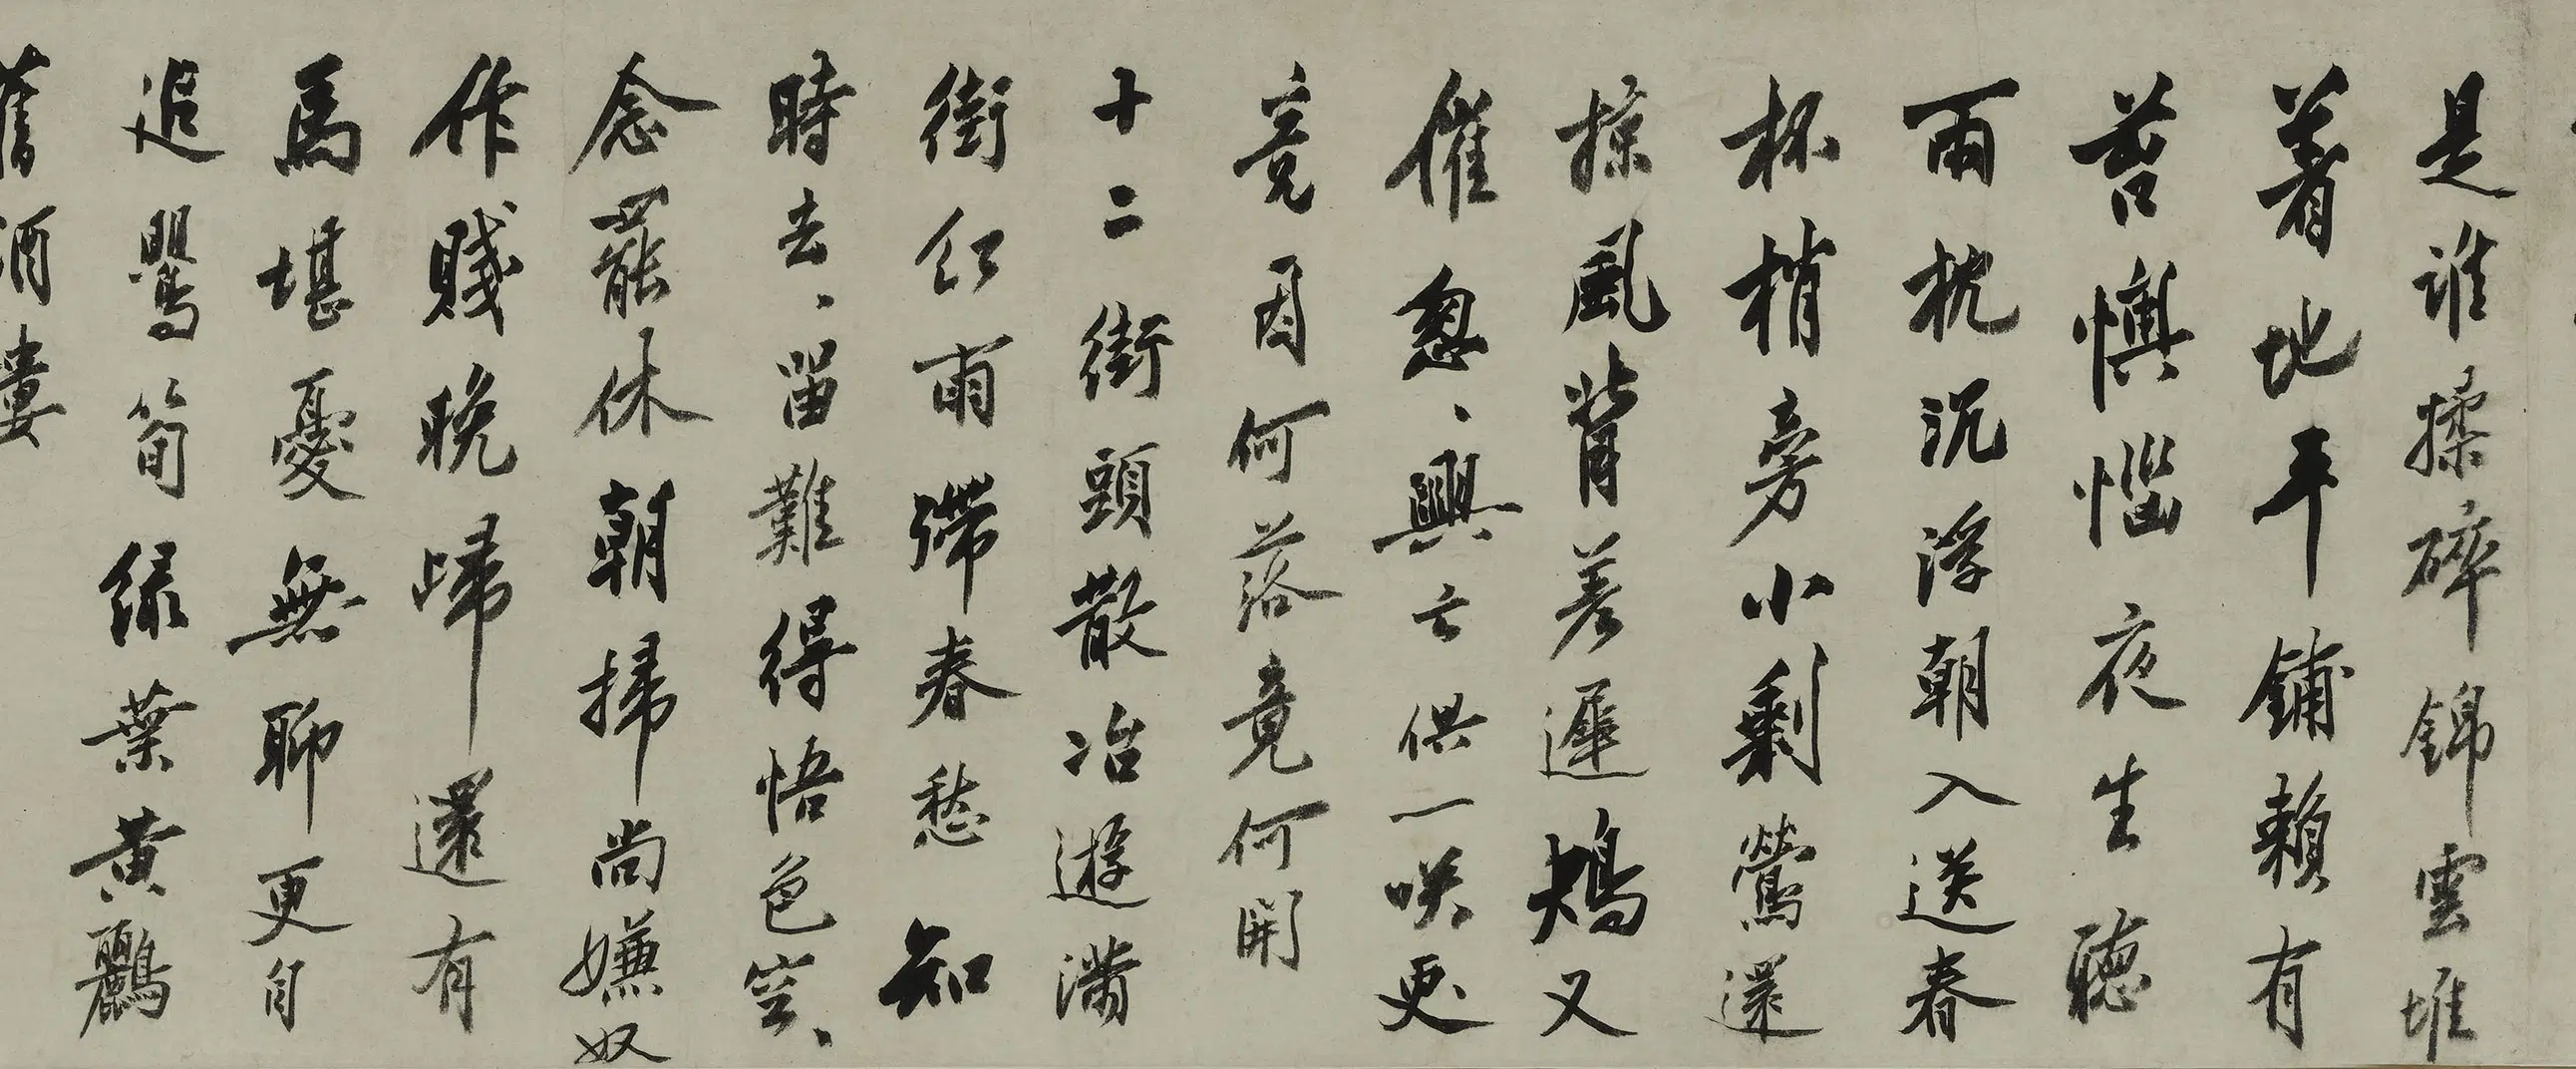 是誰揉碎錦雲堆
著地平鋪賴有
苔懊惱夜生聽
雨枕沉浮朝入送春
杯梢旁小剩鶯還
掠風背差遲鴆又
催忽、興亡供一咲更
竟因何落竟何開
十二街頭散冶遊滿
街紅雨滯春愁知
時去、留難得悟色空、
念罷休朝掃尚嫌奴
作賤晚歸還有
馬堪憂無聊更自
追鶯筍綠葉黃鸝
舊酒婁